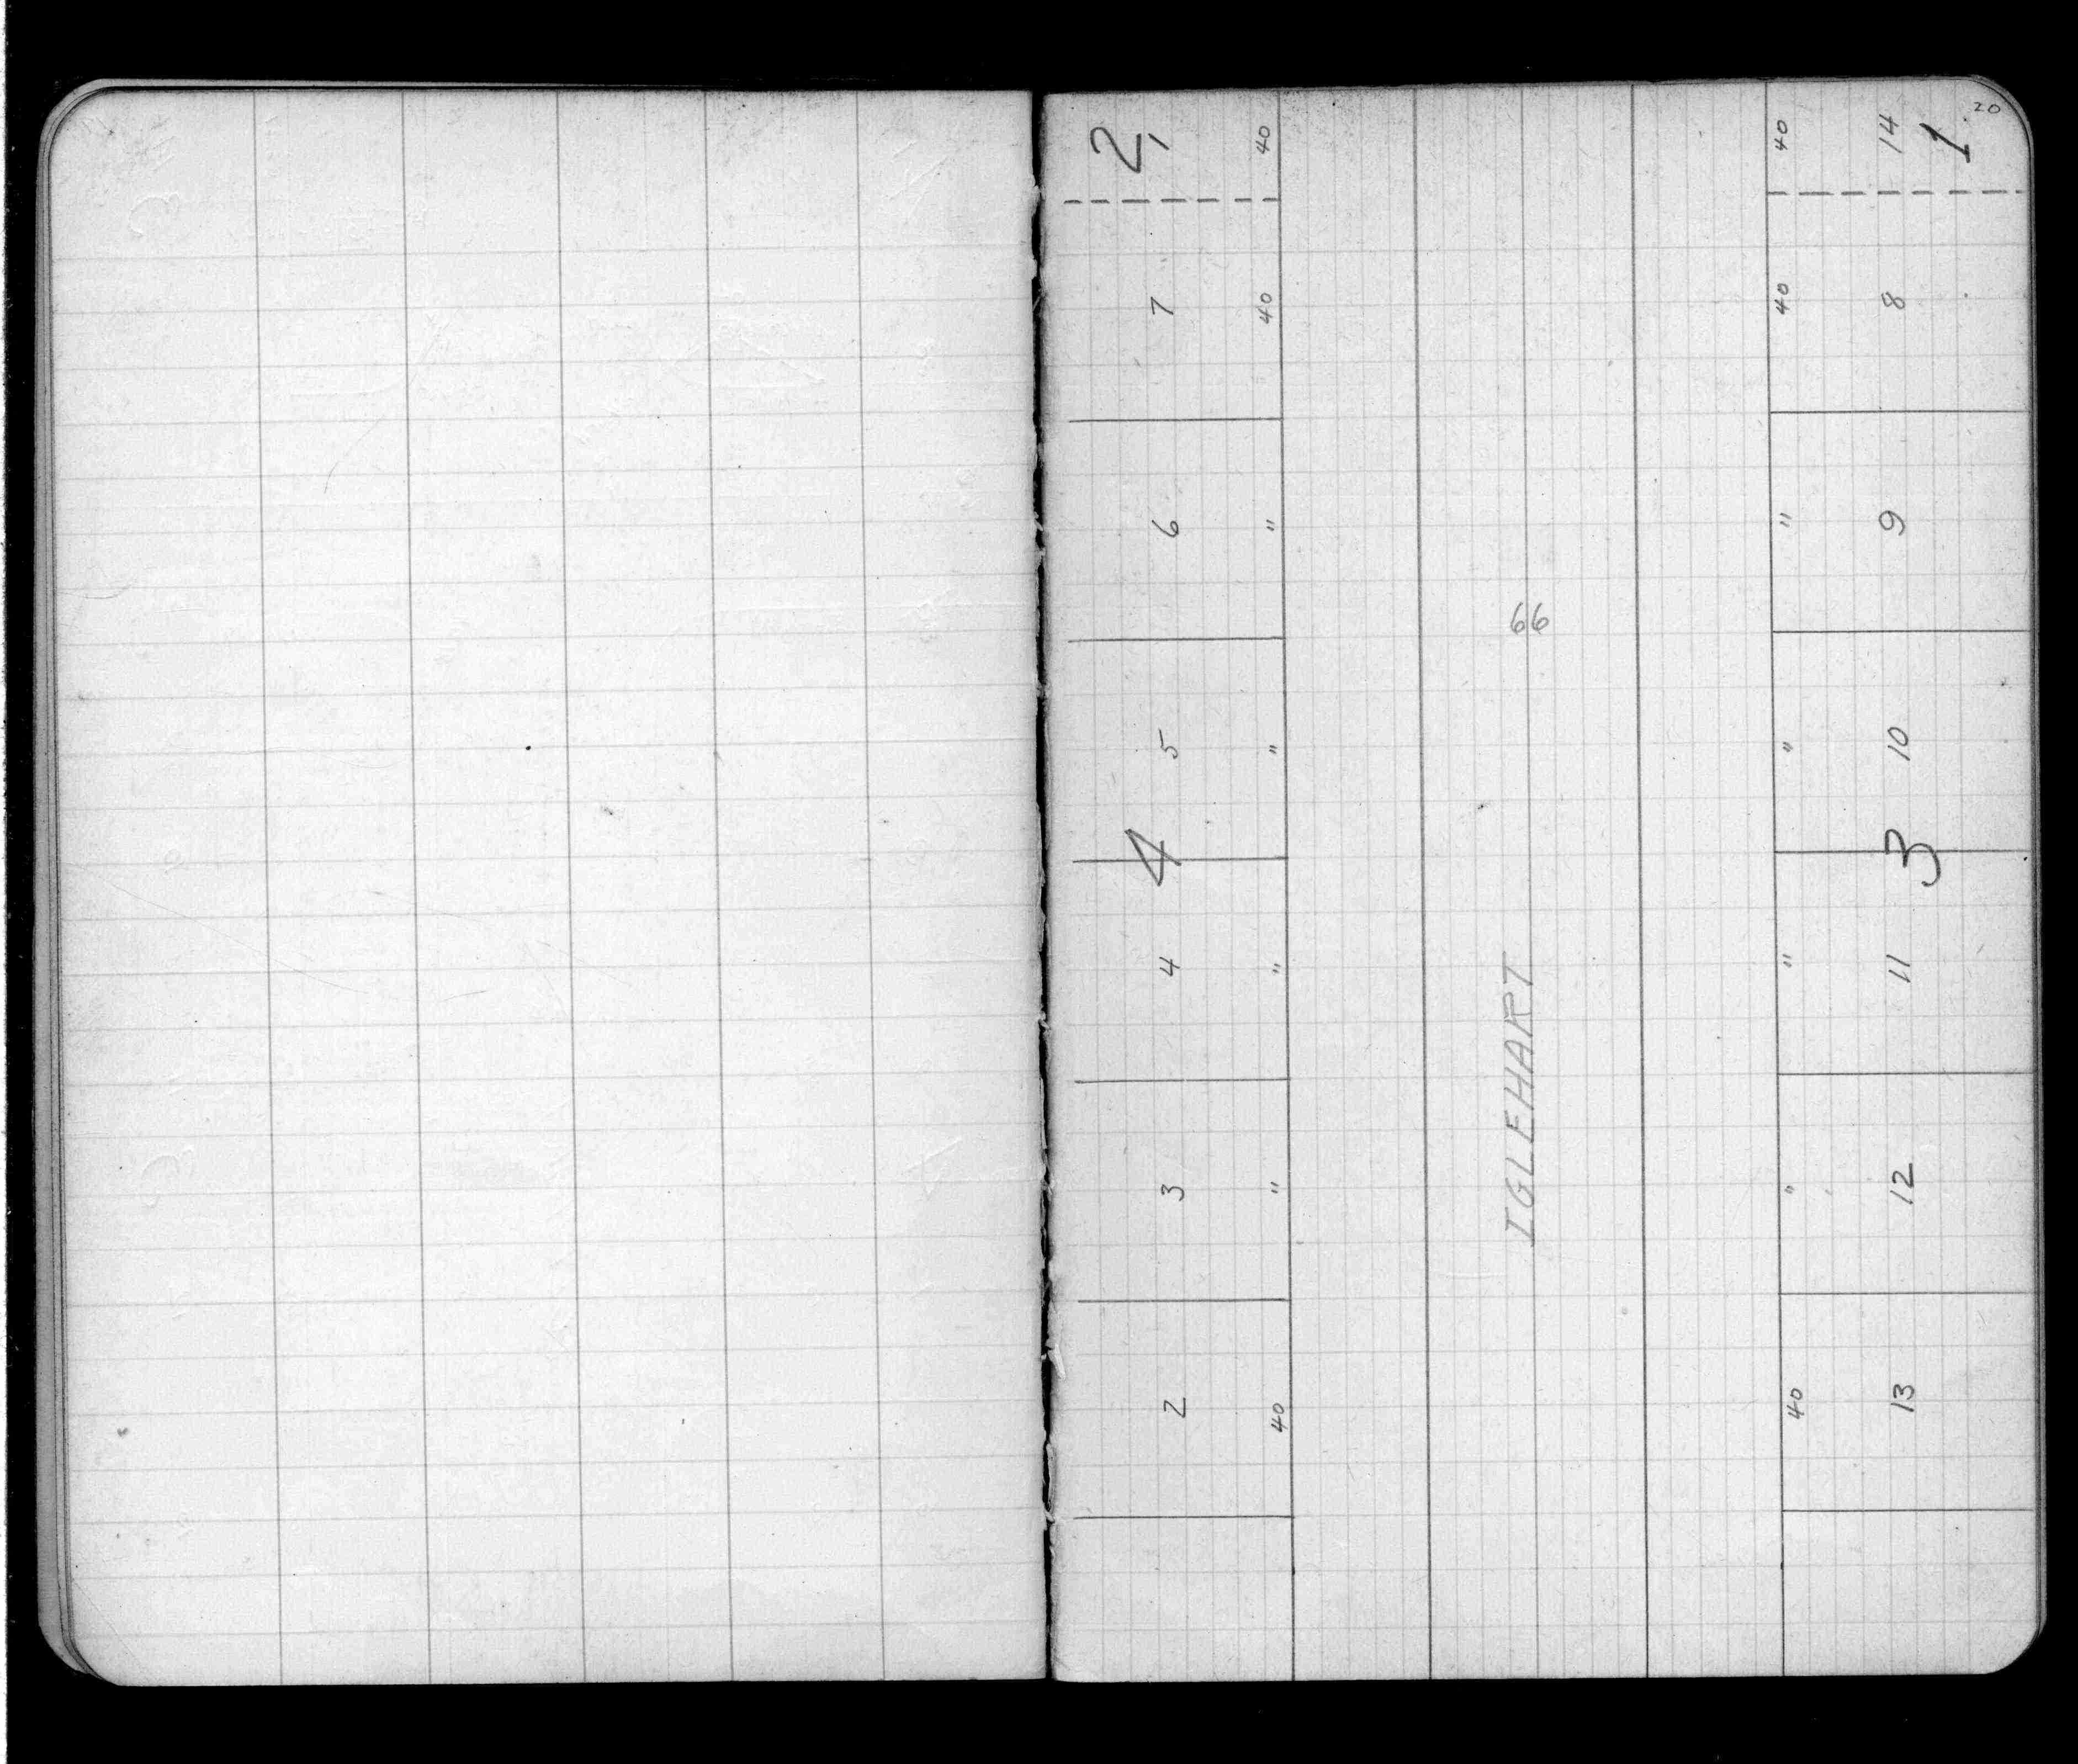 20
2, 40 40 14 1
7 40 40 8
6 " " 9
66
5 " " 10
4 3
4 " " 11
IGLEHART
3 " " 12
2 40 40 13